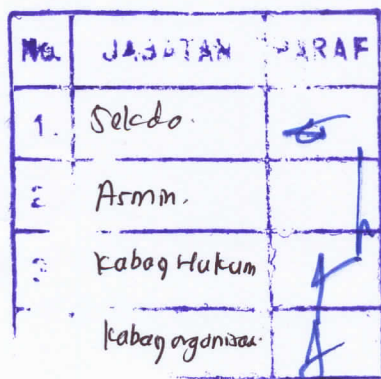 No. JABATAN PARAF
1. Sekdo.
2 Asmin.
3 Kabag Hukum
Kabag organisasi.